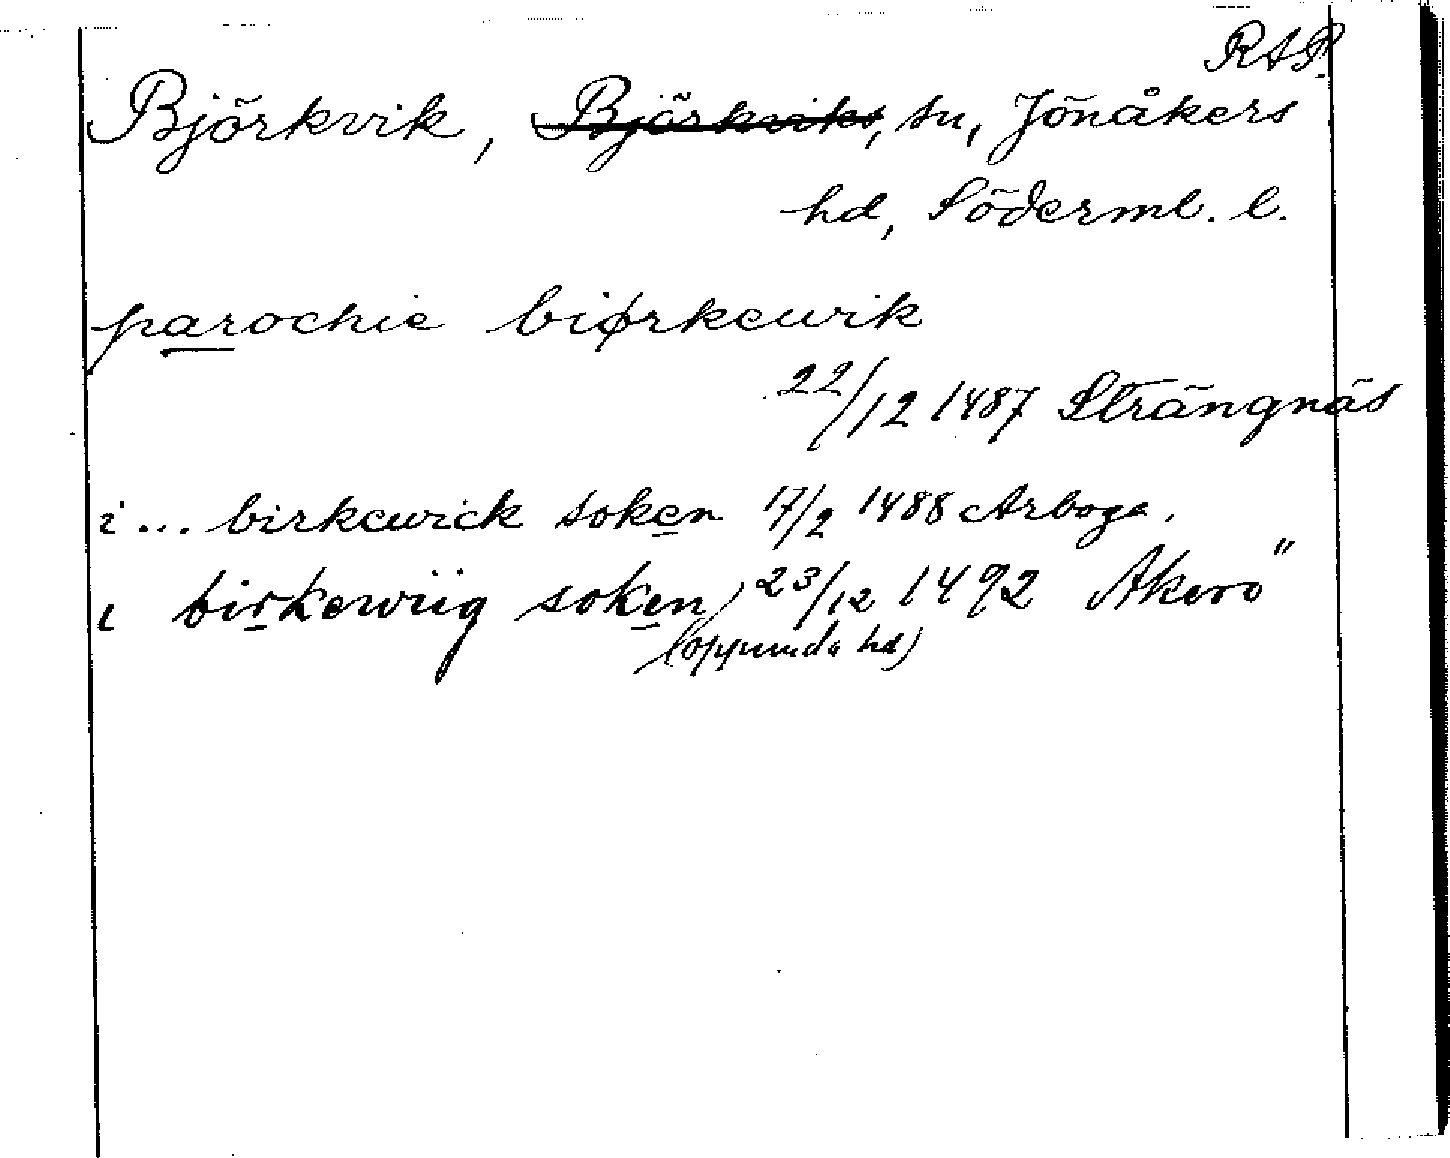 RAP.
Björkvik, Björkviks, sn, Jönåkers
hd, Söderml. l.
parochie biørkewik
22/12 1487 Strängnäs
i ... birkewick soken 17/2 1488 Arboga.
i birkewiig soken 23/12 1492 Åkerö
(oppunda hd)